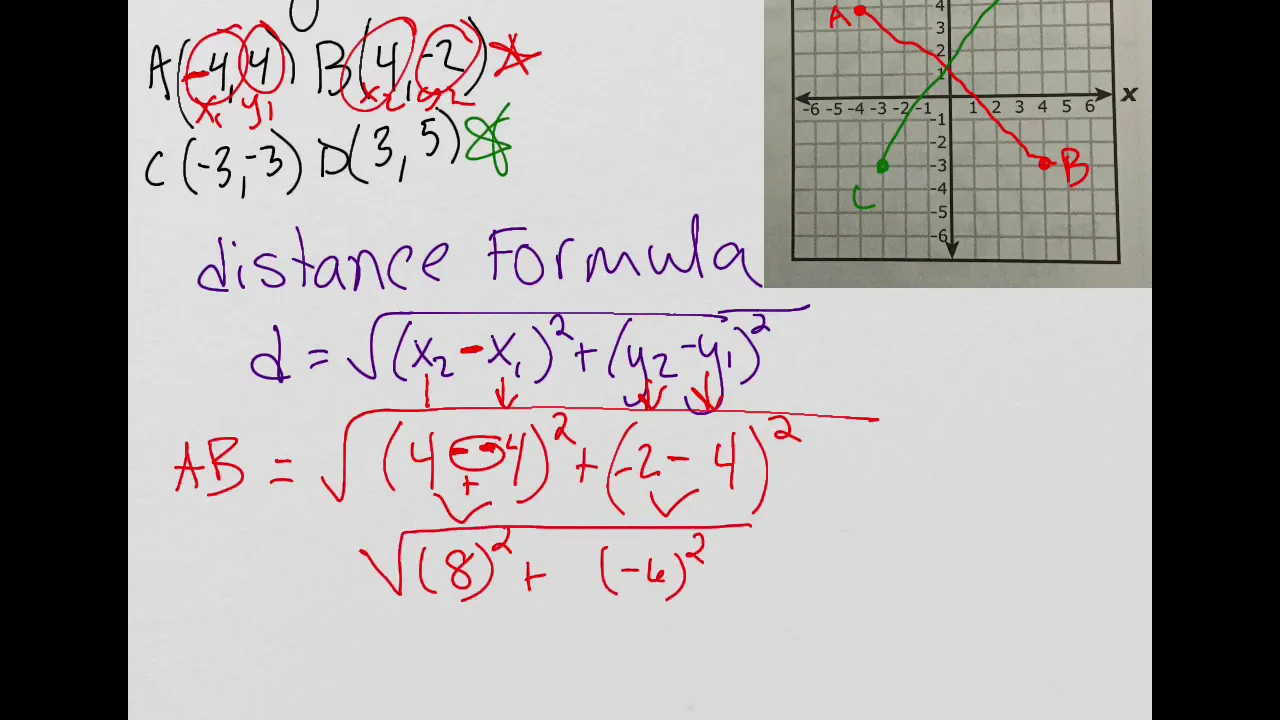 A(-4, 4) B(4, -2)
x₁ y₁ x₂ y₂
C(-3, -3) D(3, 5)
distance Formula
d = √(x₂ - x₁)² + (y₂ - y₁)²
AB = √(4 - -4)² + (-2 - 4)²
+
√(8)² + (-6)²
4
A 3
2
1
-6 -5 -4 -3 -2 -1 0 1 2 3 4 5 6 x
-1
-2
-3 B
C -4
-5
-6